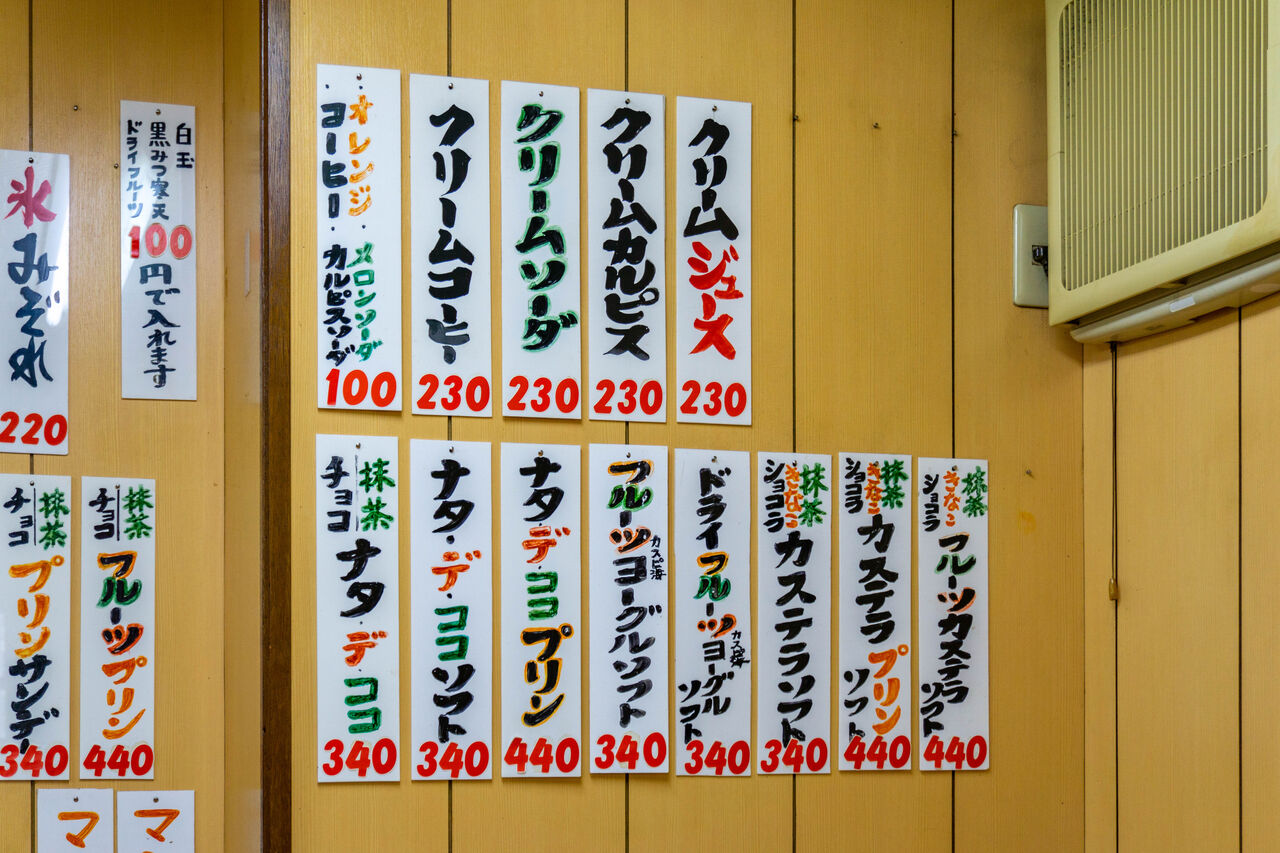 氷
みぞれ
220
白玉
黒みつ寒天
ドライフルーツ
100
円で入れます
オレンジ・
コーヒー・
メロンソーダ
カルピスソーダ
100
クリームコーヒー
230
クリームソーダ
230
クリームカルピス
230
クリームジュース
230
抹茶
チョコ
プリンサンデー
340
抹茶
チョコ
フルーツプリン
440
抹茶
チョコ
ナタ・デ・ココ
340
ナタ・デ・ココソフト
340
ナタ・デ・ココプリン
440
カスピ海
フルーツヨーグルソフト
340
ドライフルーツ
カスピ海
ヨーグル
ソフト
340
抹茶
きなこ
ショコラ
カステラソフト
340
抹茶
きなこ
ショコラ
カステラプリン
ソフト
440
抹茶
きなこ
ショコラ
フルーツカステラ
ソフト
440
マ
マ